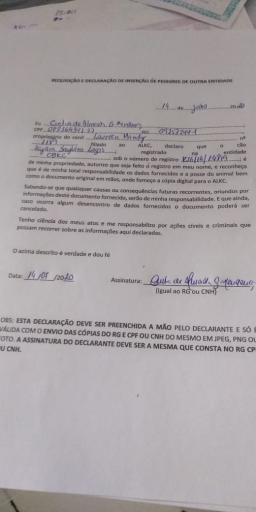 REQUISIÇÃO E DECLARAÇÃO DE INSERÇÃO DE PEDIGREE DE OUTRA ENTIDADE
14 de julho
Eu
CPF RG
proprietário do canil nº
filiado ao ALKC, declaro que o cão
registrado na entidade
CBKC sob o número de registro é
de minha propriedade, autorizo que seja feito o registro em meu nome, e reconheço
que é de minha total responsabilidade os dados fornecidos e a posse do animal bem
como o documento original em mãos, onde forneço a cópia digital para o ALKC.
Sabendo-se que quaisquer causas ou consequências futuras recorrentes, oriundas por
informações deste documento fornecido, serão de minha responsabilidade. E que ainda,
caso ocorra algum desencontro de dados fornecidos o documento poderá ser
cancelado.
Tenho ciência dos meus atos e me responsabilizo por ações cíveis e criminais que
possam recorrer sobre as informações aqui declaradas.
O acima descrito é verdade e dou fé
Data: 14/07/2020 Assinatura:
(Igual ao RG ou CNH)
OBS: ESTA DECLARAÇÃO DEVE SER PREENCHIDA A MÃO PELO DECLARANTE E SÓ É
VÁLIDA COM O ENVIO DAS CÓPIAS DO RG E CPF OU CNH DO MESMO EM JPEG, PNG OU
FOTO. A ASSINATURA DO DECLARANTE DEVE SER A MESMA QUE CONSTA NO RG CPF
OU CNH.